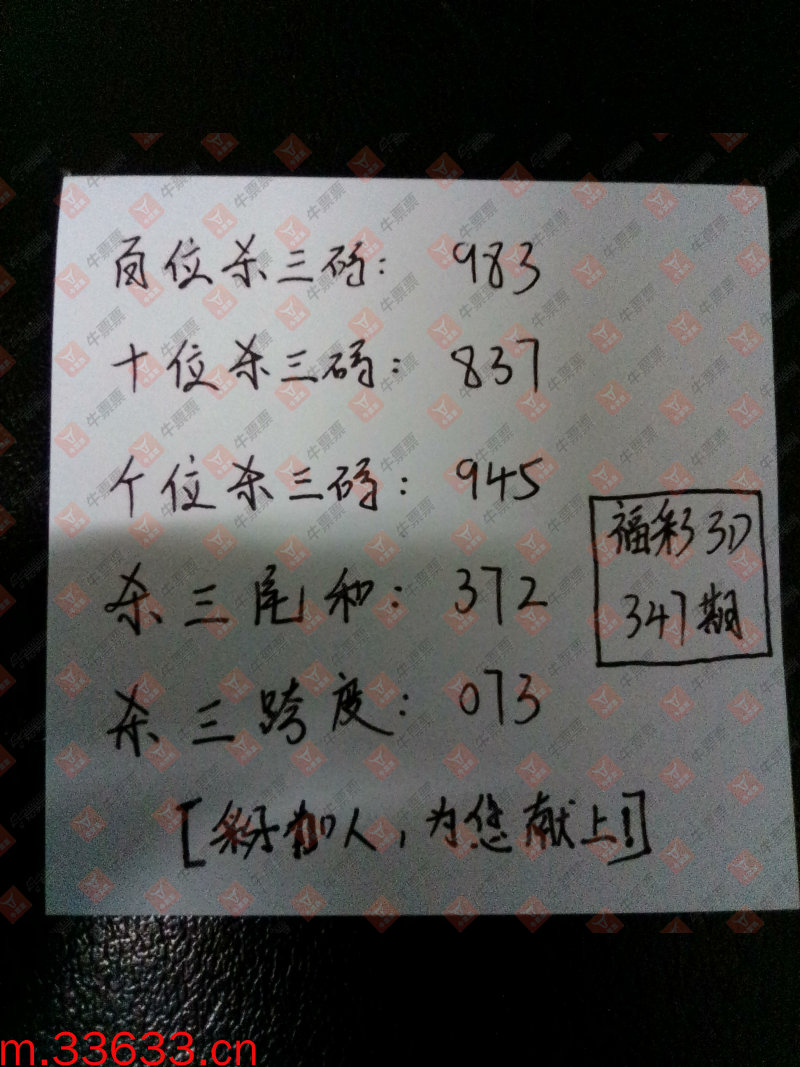 百位杀三码: 983
十位杀三码: 837
个位杀三码: 945
福彩3D
347期
杀三尾和: 372
杀三跨度: 073
[彩加人,为您献上!]
牛票票
m.33633.cn